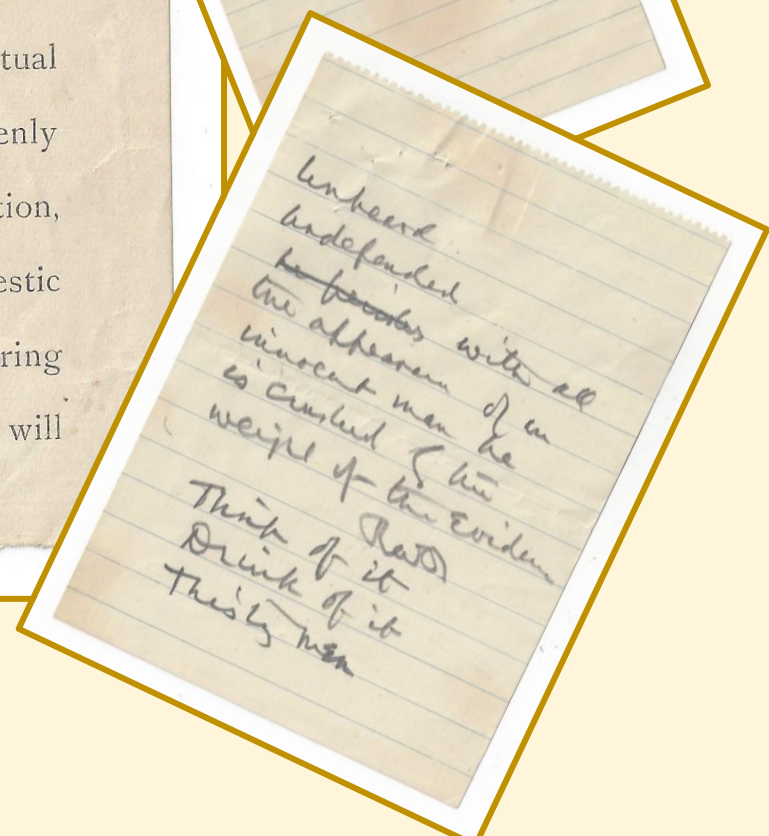 tual
enly
tion,
estic
ring
will
Unheard
Undefended
with all
the appearance of an
innocent man he
is crushed by the
weight of the Evidence
Think of it
Drink of it
Thirsty men